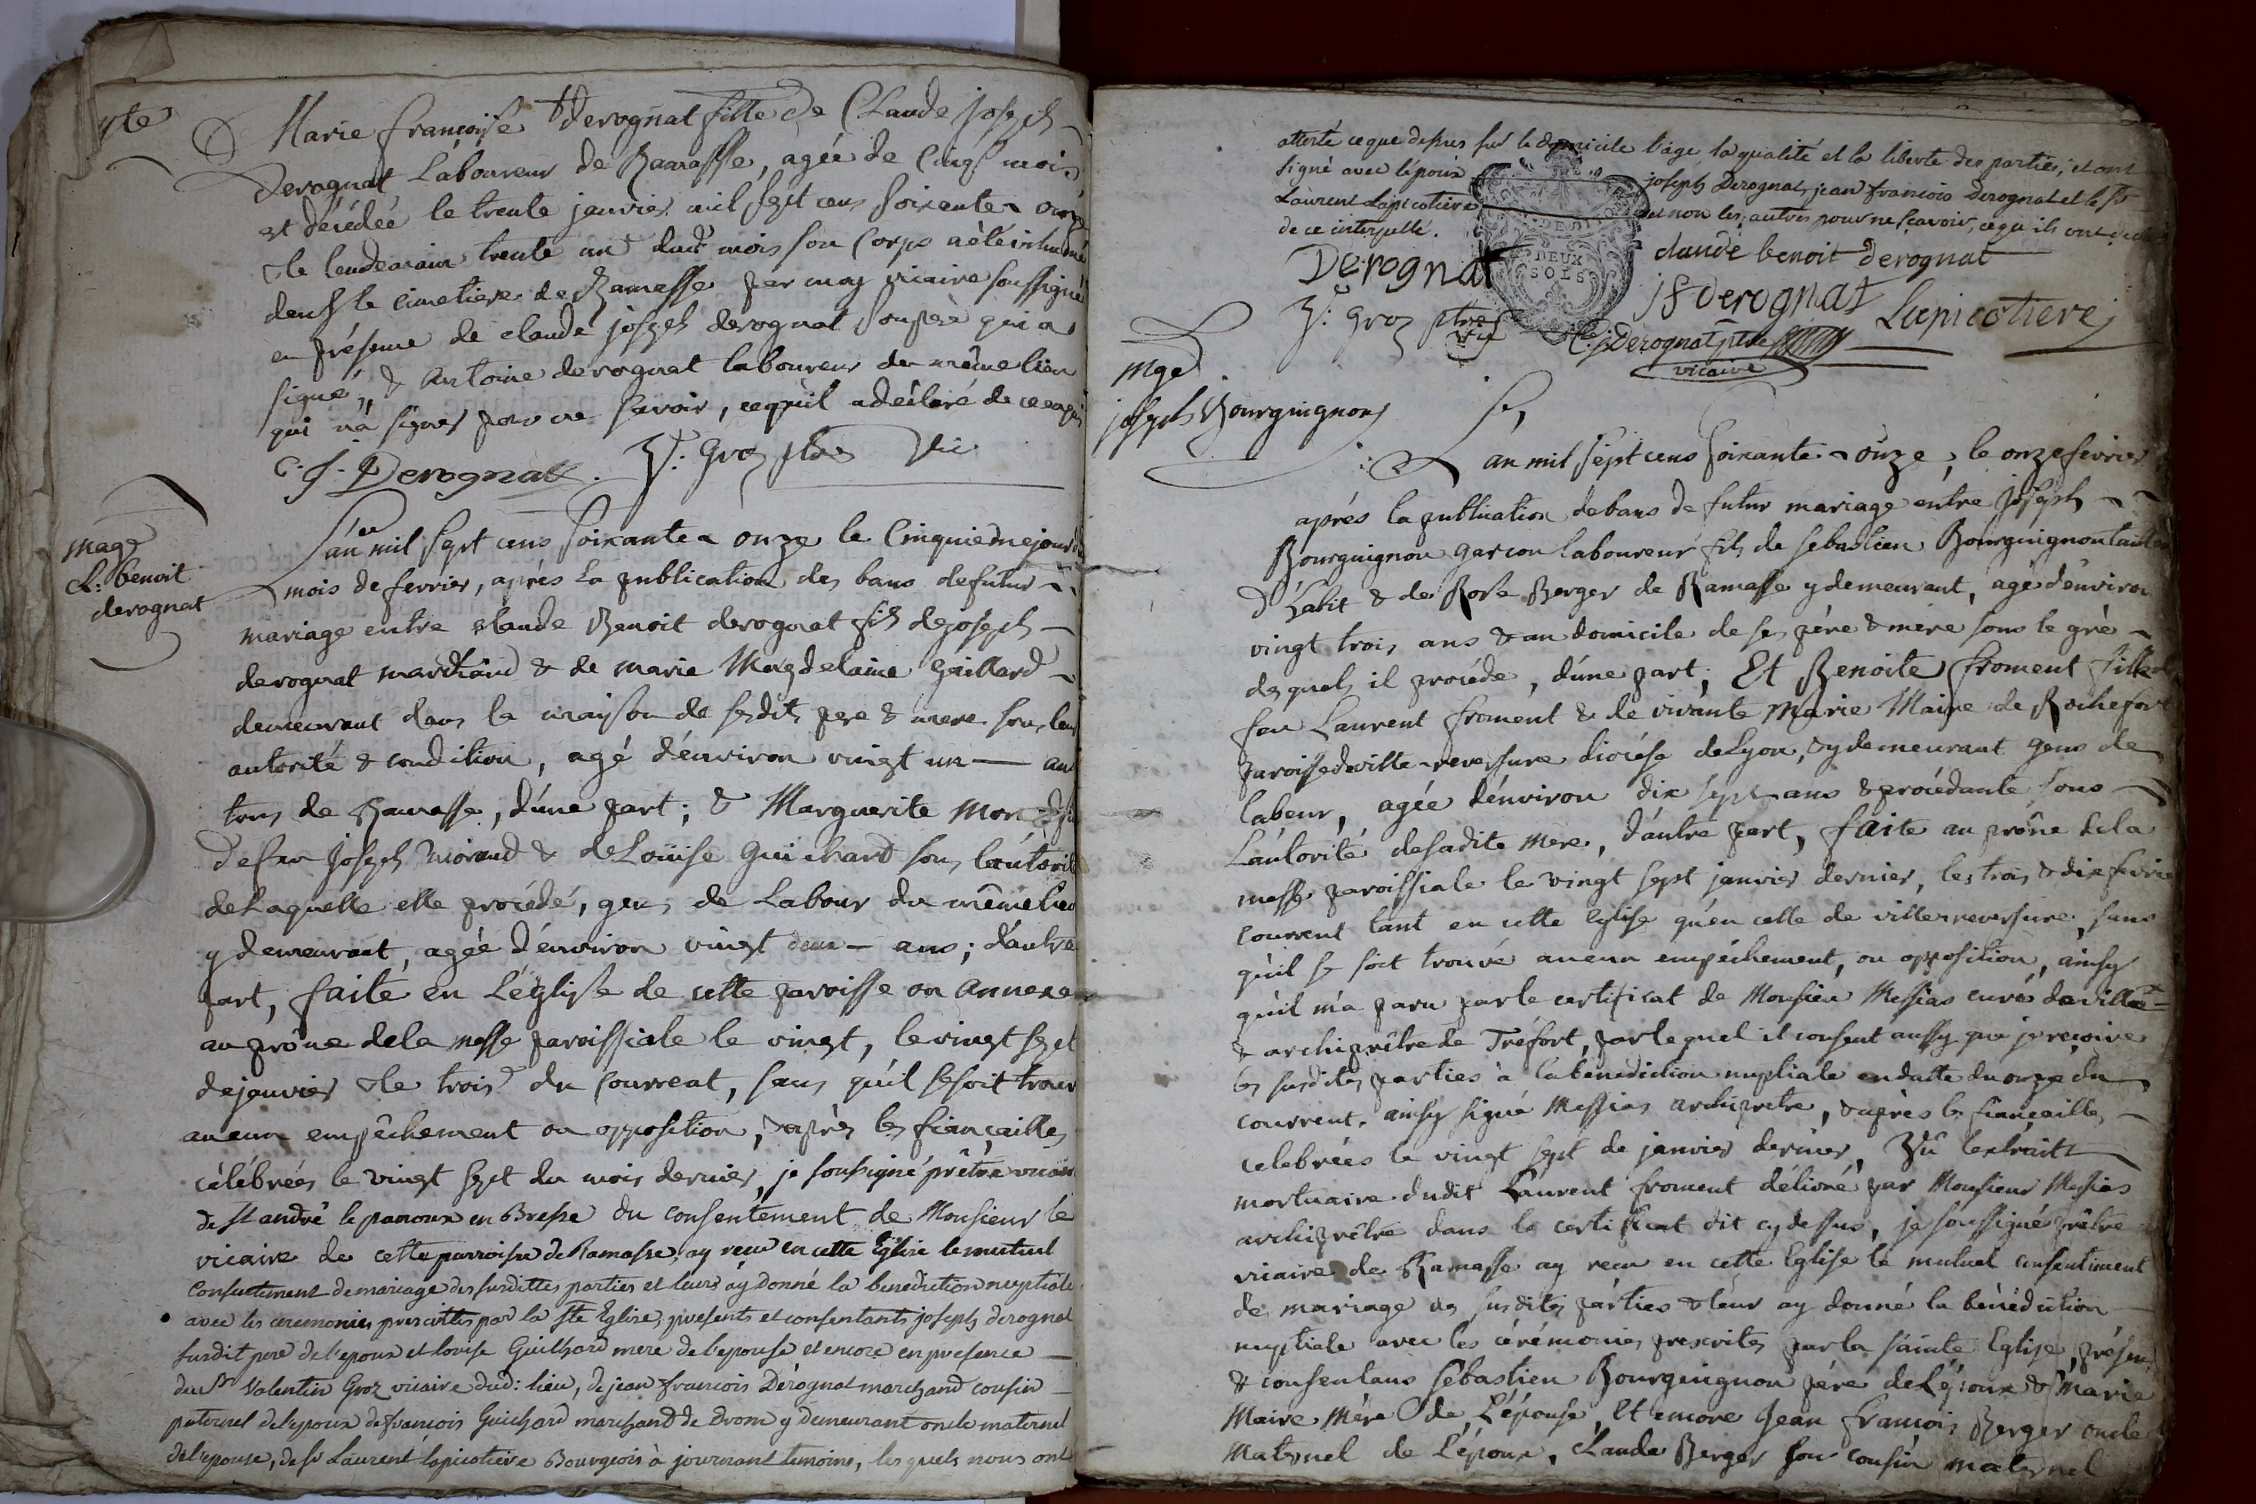 Marie françoise derognat fille de Claude joseph
derognat Laboureur de Ramasse, agée de Cinq mois
est décédée le trente janvier mil sept cens soixante onze
& le lendemain trente un dud. mois son Corps a été inhumé
dens le cimetiere de Ramasse par moy vicaire soussigné
en présence de claude joseph derognat son père qui a
signé, & Antoine derognat laboureur du même lieu
qui n'a signer pour ne savoir, ce qu'il a déclaré de ce enquis
C. J. Derognat. V: Groz ptre Vic
mage
Cl: benoit
derognat
L'an mil sept cens soixante & onze le Cinquieme jour du
mois de fevrier, après La publication des bans de futur
mariage entre claude Benoit derognat fils de joseph
derognat marchand & de marie Magdelaine Gaillard
demeurant dans la maison de sesdits pere & mere sous leur
autorité & condition, agé d'environ vingt un — ans
tous de Ramasse, d'une part; & Marguerite
de feu Joseph Morand & de Loüise Guichard sous l'autorité
de Laquelle elle procédé, gens de Labour du même lieu
y demeurant, agée d'environ vingt deux — ans; d'autre
part, faite en L'église de cette paroisse ou Annexe
au prône de la messe paroissiale le vingt, le vingt sept
de janvier & le trois du courrent, sans qu'il se soit trouvé
aucun empêchement ou opposition, & après les fiançailles
célébrées le vingt sept du mois dernier, je soussigné prêtre vicaire
de St andré le panoux en Bresse du consentement de Monsieur le
vicaire de cette parroisse de Ramasse, ay reçu en cette Eglise le mutuel
Consentement de mariage des susdittes parties et leurs ay donné la benediction nuptiale
avec les ceremonies prescrittes par la Ste Eglise, presents et consentants joseph derognat
susdit pere de l'epoux et Lovise Guichard mere de l'epouse et encore en presence
du Sr Valentin Groz vicaire dud: lieu, de jean francois Dérognat marchand cousin
paternel de l'epoux de francois Guichard marchand de drom y demeurant oncle maternel
de l'epouse, de Sr Laurent lapicotiere Bourgeois à journant temoins, les quels nous ont
attesté ce que dessus sur le domicile l'age la qualité et la liberté des parties, et ont
signé avec l'époux joseph Derognat, jean francois Derognat et le Sr
Laurent Lapicotiere et non les autres pour ne sçavoir, ce qu'ils ont
de ce interpellé.
DEUX
SOLS
Derognat claude benoit derognat
V: Groz ptre vic J f derognat Lapicotiere
C. j. Derognat ptre
vicaire
Mge
joseph Bourguignon
L'an mil sept cens soixante & onze, le onze fevrier
aprés la publication de bans de futur mariage entre Joseph
Bourguignon garcon laboureur fils de sebastien Bourguignon
d'habit & de Rose Berger de Ramasse y demeurant, agé d'environ
vingt trois ans & au domicile de ses père & mère sous le gré
desquels il procéde, d'une part; Et Benoite froment fille de
feu Laurent froment & de vivante Marie Maire de Rochefort
paroisse de ville-reversure diocése de Lyon, & y demeurant gens de
labeur, agée d'environ dix sept ans & procédante sous
L'autorité de sadite mere, d'autre part, faite au prône de la
messe paroissiale le vingt sept janvier dernier, les trois & dix fevrier
courrent tant en cette Eglise qu'en celle de ville-reversure, sans
qu'il se soit trouvé aucun empéchement, ou opposition, ainsy
qu'il m'a paru par le certificat de Monsieur Messias curé de ville
& archiprêtre de Tréfort, par lequel il consent aussy que je reçoive
les susdites parties à la bénédiction nuptiale en datte du onze du
courrent. ainsy signé Messias archiprêtre, & après les fiançailles
celebrées le vingt sept de janvier dernier, Vû l'extrait
mortuaire dudit Laurent froment délivré par Monsieur Messias
archiprêtre dans le certificat dit cy dessus, je soussigné prêtre
vicaire de Ramasse ay reçu en cette Eglise le mutuel consentiment
de mariage des susdites parties & leur ay donné la bénédiction
nuptiale avec les cérémonies prescrites par la sainte Eglise, présens
& consentans Sébastien Bourguignon père de L'époux & Marie
Maire Mère de L'épouse, Et encore Jean françois Berger oncle
Maternel de L'époux, Claude Berger son cousin maternel